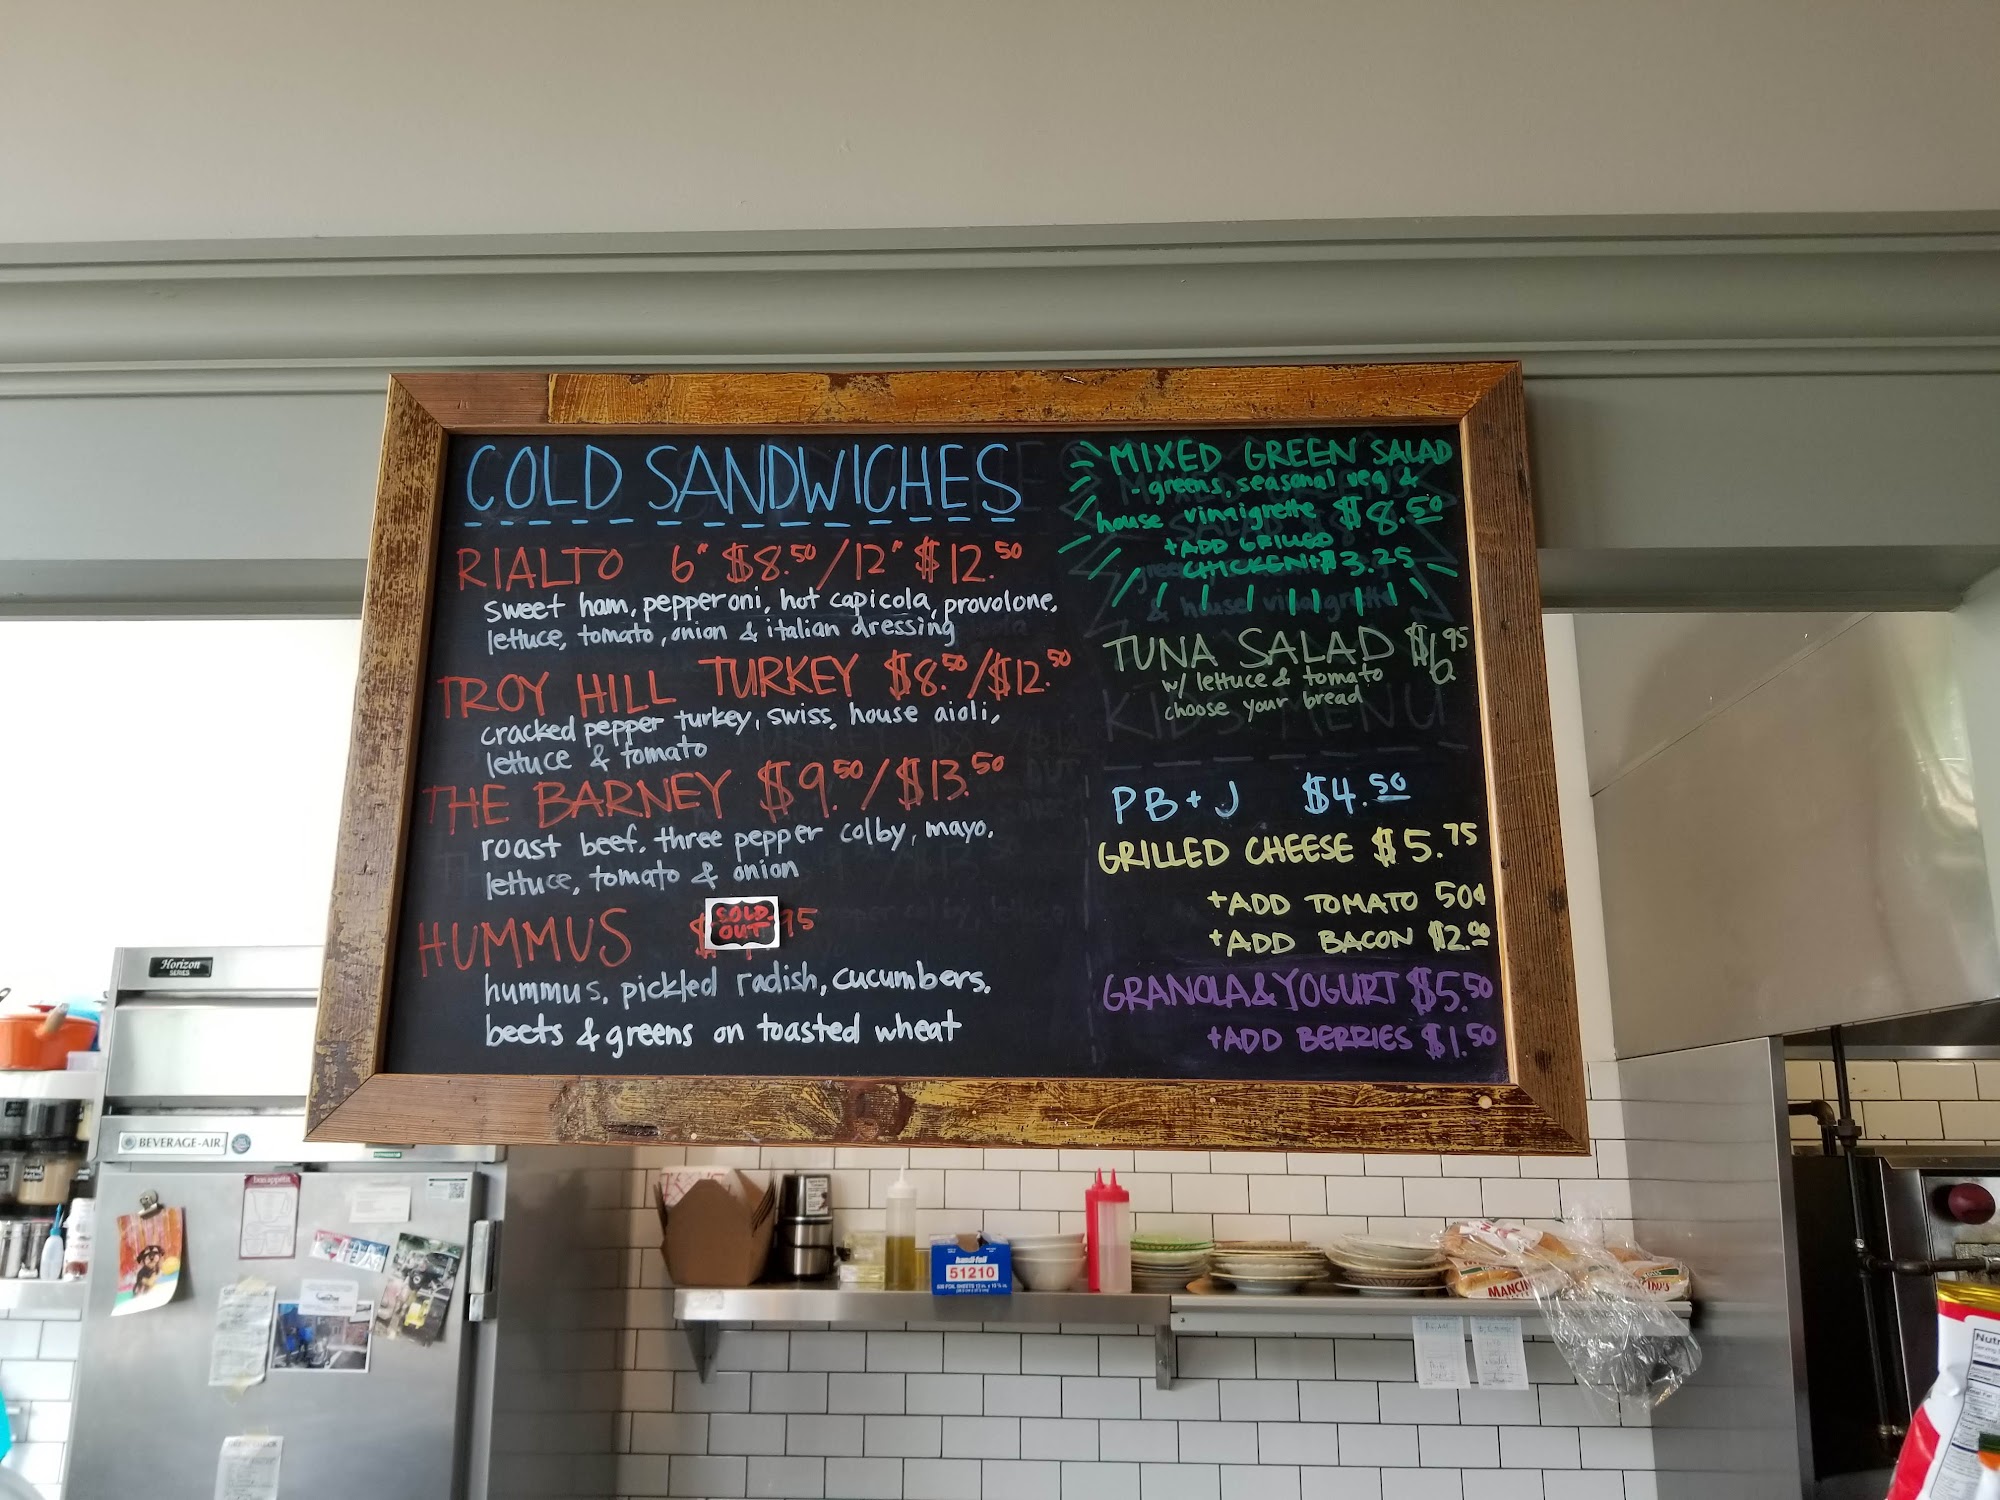 COLD SANDWICHES
RIALTO 6" $8.50/12" $12.50
sweet ham, pepperoni, hot capicola, provolone,
lettuce, tomato, onion & italian dressing
TROY HILL TURKEY $8.50/$12.50
cracked pepper turkey, swiss, house aioli,
lettuce & tomato
THE BARNEY $9.50/$13.50
roast beef, three pepper colby, mayo,
lettuce, tomato & onion
HUMMUS $ 95
SOLD
OUT
hummus, pickled radish, cucumbers,
beets & greens on toasted wheat
MIXED GREEN SALAD
- greens, seasonal veg &
house vinaigrette $8.50
+ADD GRILLED
CHICKEN +$3.25
TUNA SALAD $6.95
w/ lettuce & tomato
choose your bread
KIDS MENU
PB+J $4.50
GRILLED CHEESE $5.75
+ADD TOMATO 50¢
+ADD BACON $2.00
GRANOLA & YOGURT $5.50
+ADD BERRIES $1.50
Horizon
SERIES
BEVERAGE-AIR
bon appétit
51210
MANCINI